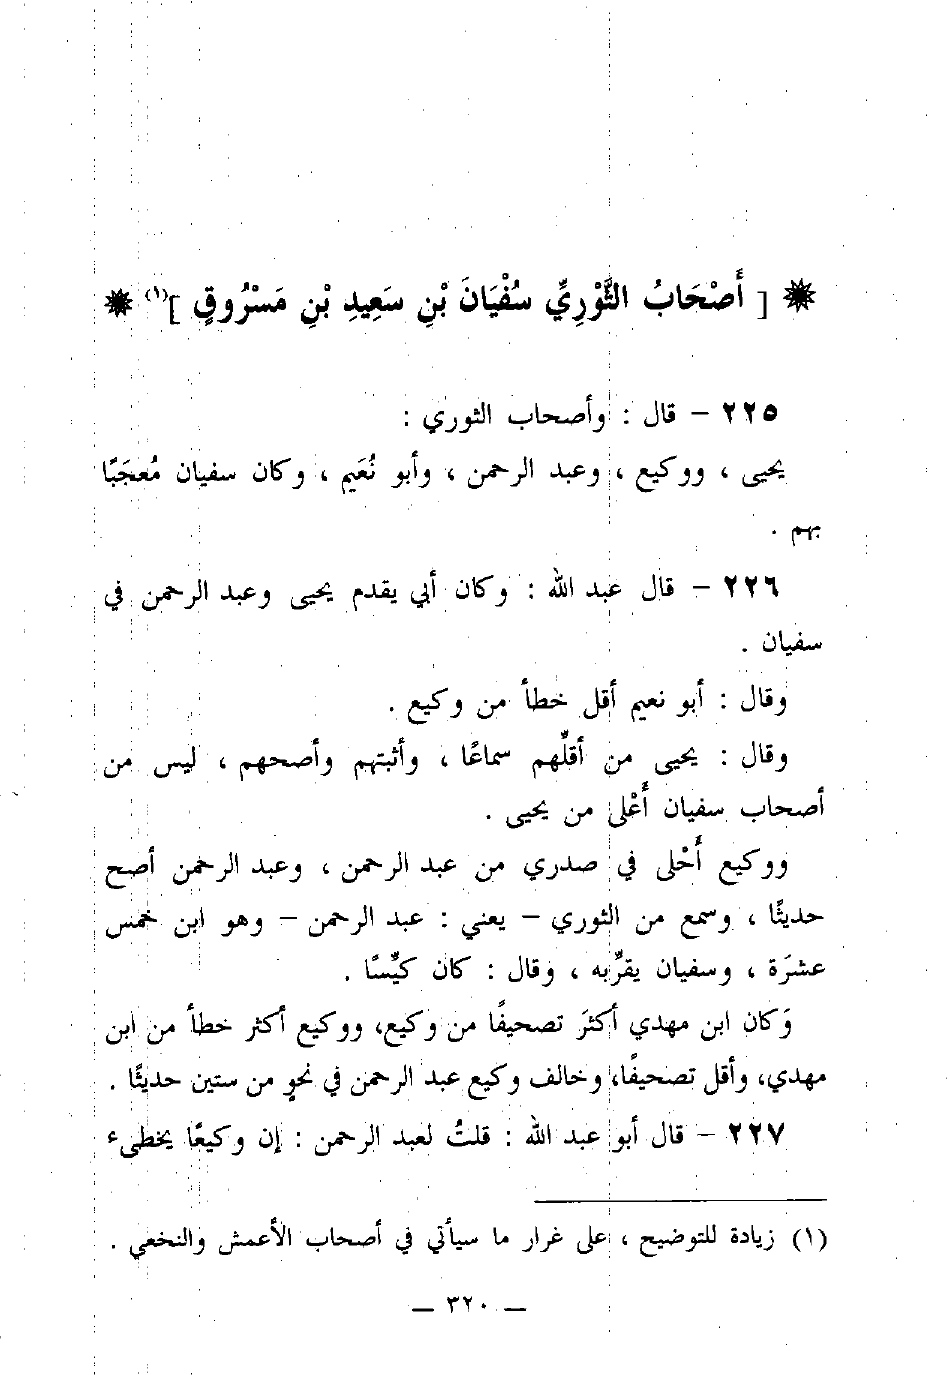 [ أَصْحَابُ الثَّوْرِيِّ سُفْيَانَ بْنِ سَعِيدِ بْنِ مَسْرُوقٍ ](١)
٢٢٥ – قال : وأصحاب الثوري :
يحيى ، ووكيع ، وعبد الرحمن ، وأبو نُعَيم ، وكان سفيان مُعجَبًا
بهم .
٢٢٦ – قال عبد الله : وكان أبي يقدم يحيى وعبد الرحمن في
سفيان .
وقال : أبو نعيم أقل خطأ من وكيع .
وقال : يحيى من أقلِّهم سماعًا ، وأثبتهم وأصحهم ، ليس من
أصحاب سفيان أَعْلى من يحيى .
ووكيع أَحْلى في صدري من عبد الرحمن ، وعبد الرحمن أصح
حديثًا ، وسمع من الثوري – يعني : عبد الرحمن – وهو ابن خمس
عشرَة ، وسفيان يقرِّبه ، وقال : كان كيِّسًا .
وَكان ابن مهدي أكثرَ تصحيفًا من وكيع، ووكيع أكثر خطأ من ابن
مهدي، وأقل تصحيفًا، وخالف وكيع عبد الرحمن في نحوٍ من ستين حديثًا .
٢٢٧ – قال أبو عبد الله : قلتُ لعبد الرحمن : إن وكيعًا يخطىء
(١) زيادة للتوضيح ، على غرار ما سيأتي في أصحاب الأعمش والنخعي .
— ٣٢٠ —